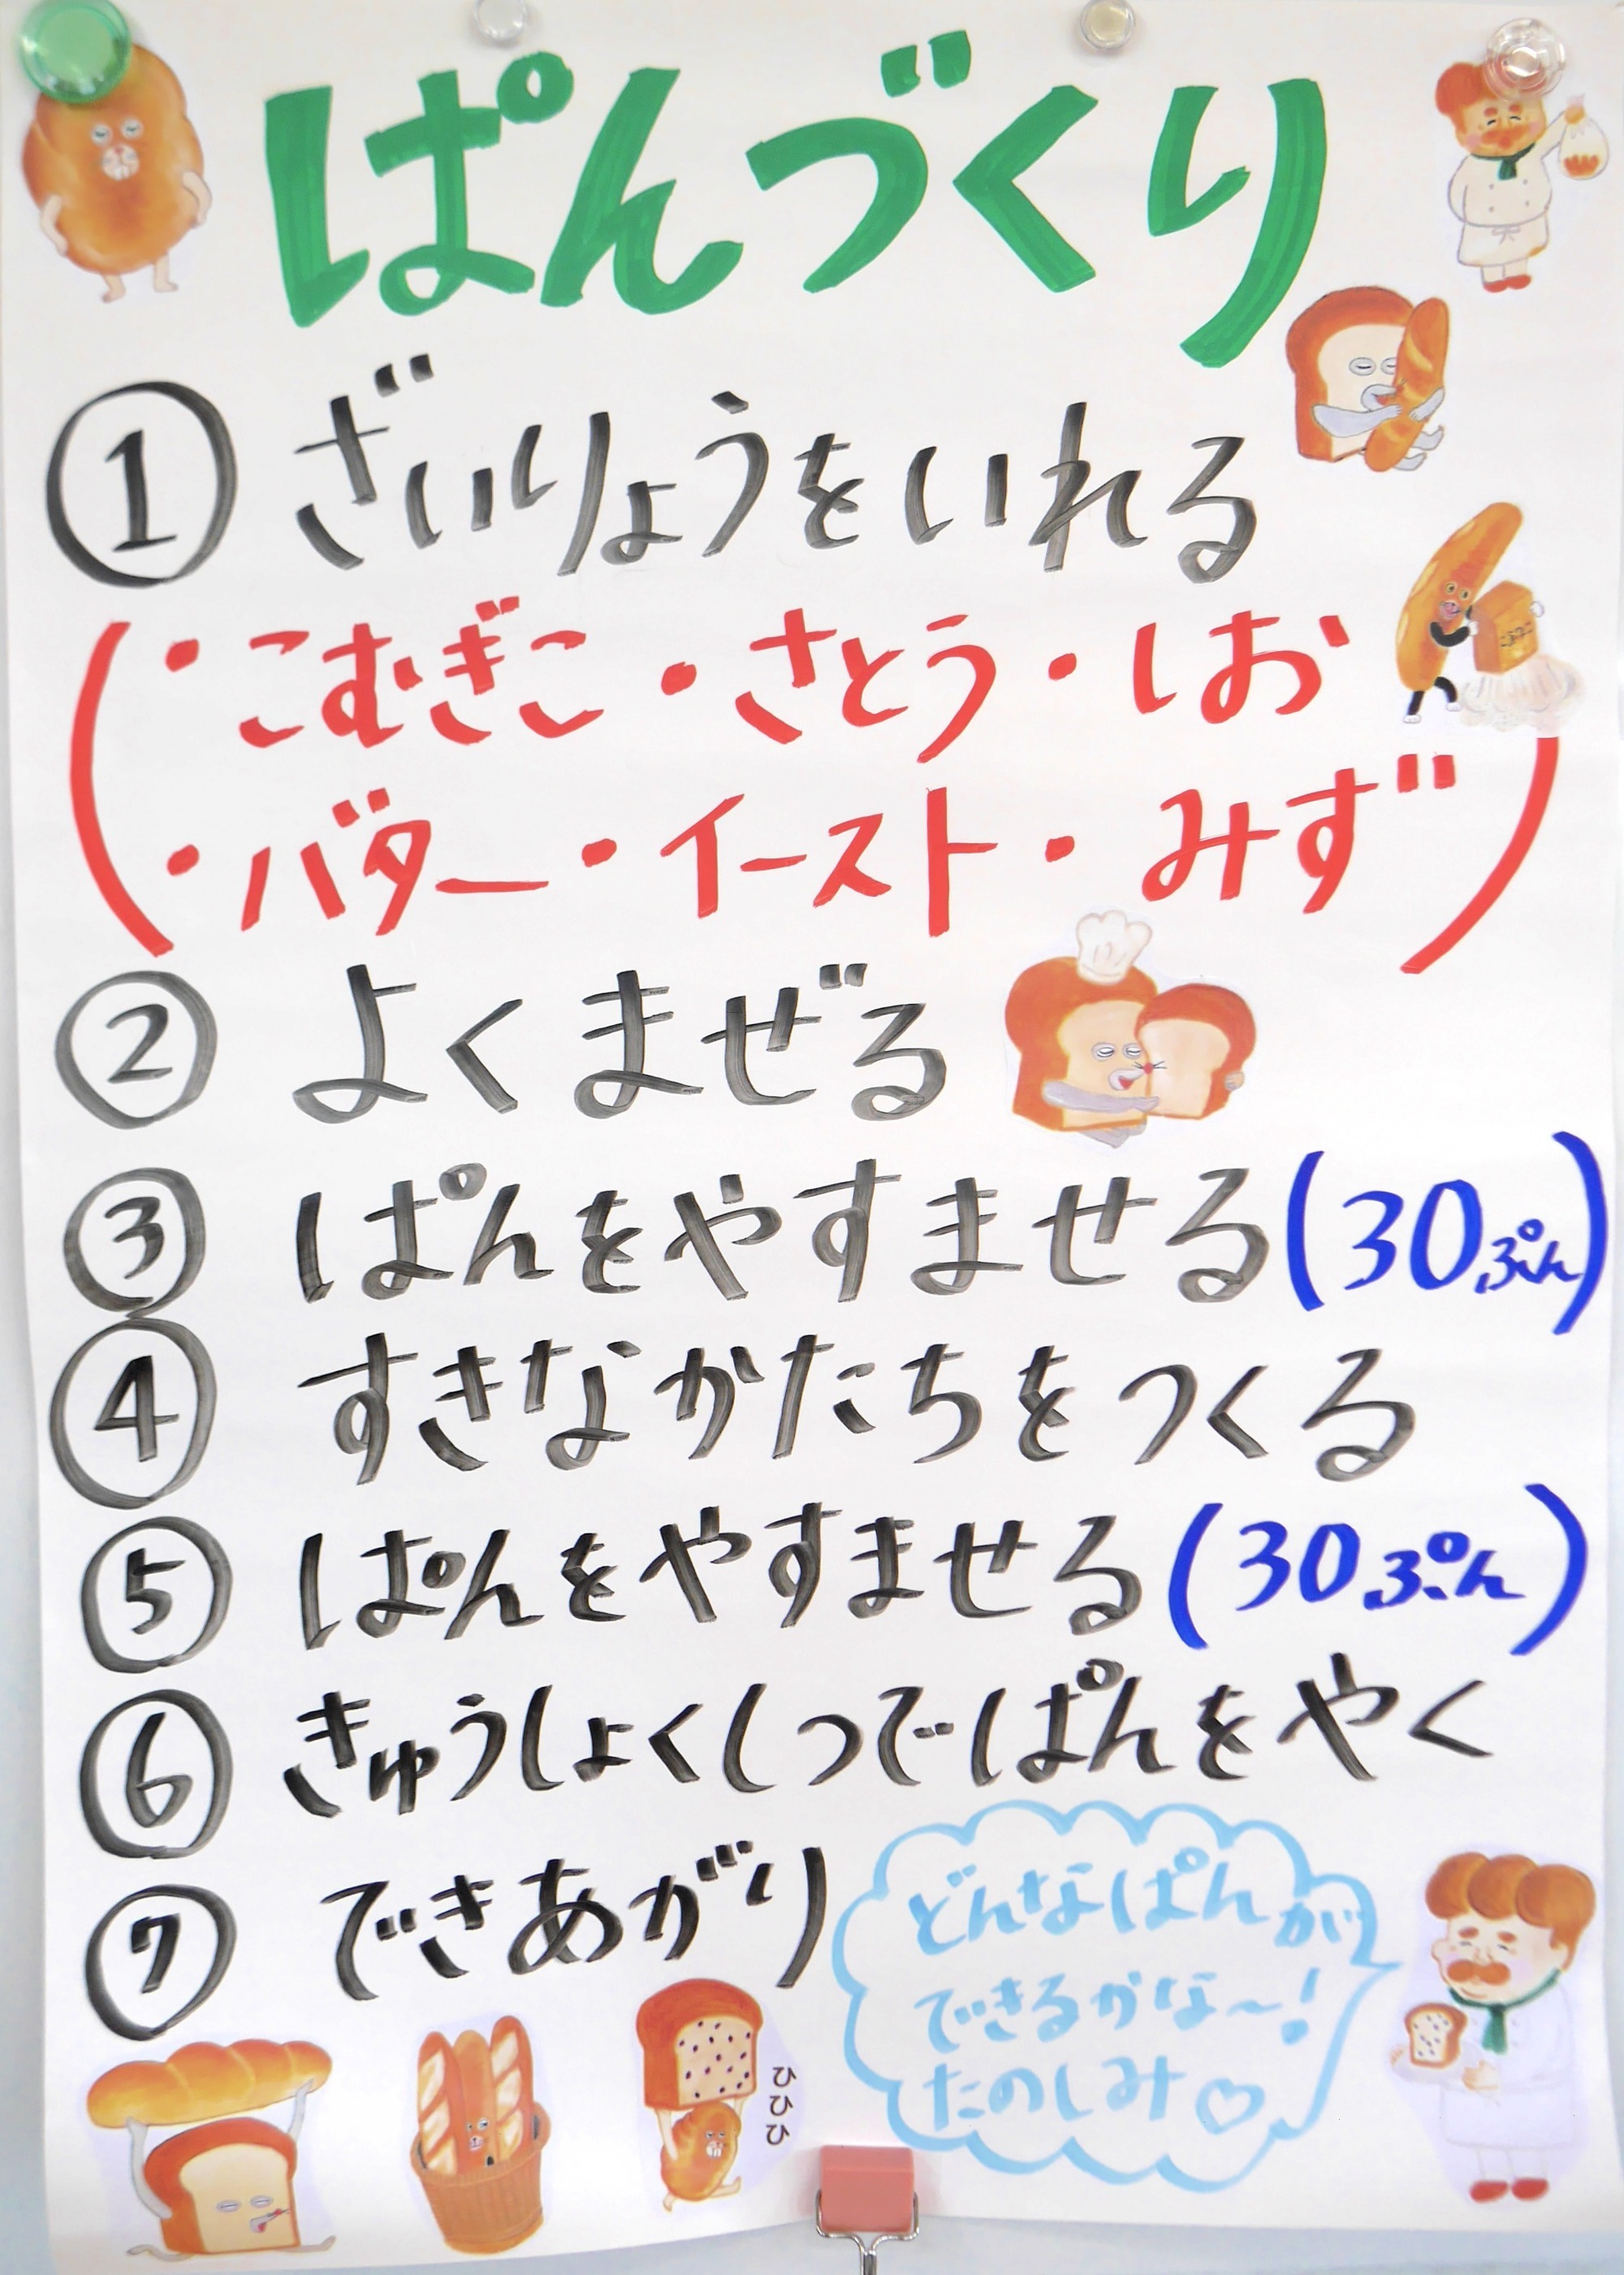 ぱんづくり
① ざいりょうをいれる
(・こむぎこ・さとう・しお
・バター・イースト・みず)
② よくまぜる
③ ぱんをやすませる(30ぷん)
④ すきなかたちをつくる
⑤ ぱんをやすませる(30ぷん)
⑥ きゅうしょくしつでぱんをやく
⑦ できあがり
どんなぱんが
できるかな〜!
たのしみ♡
ヒヒヒ